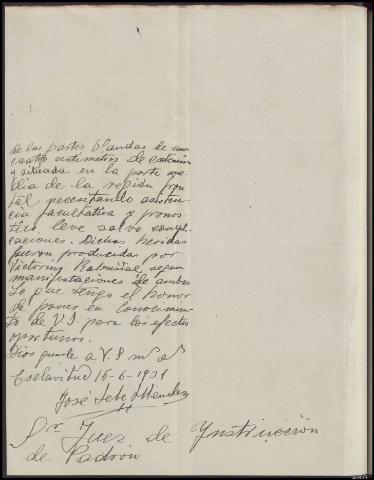 de las partes blandas de unos
cuatro centimetros de extension
y situada en la parte me-
dia de la region fron-
tal necesitando asisten-
cia facultativa y pronos-
tico leve salvo compli-
caciones. Dichas heridas
fueron producidas por
Victorino segun
manifestaciones de ambos
Lo que tengo el honor
de poner en conocimien-
to de V.S para los efectos
oportunos.
Dios guarde a V.S ms as
Esclavitud 15-6-1931
José Mendez
Sr Juez de Ynstrucción
de Padrón